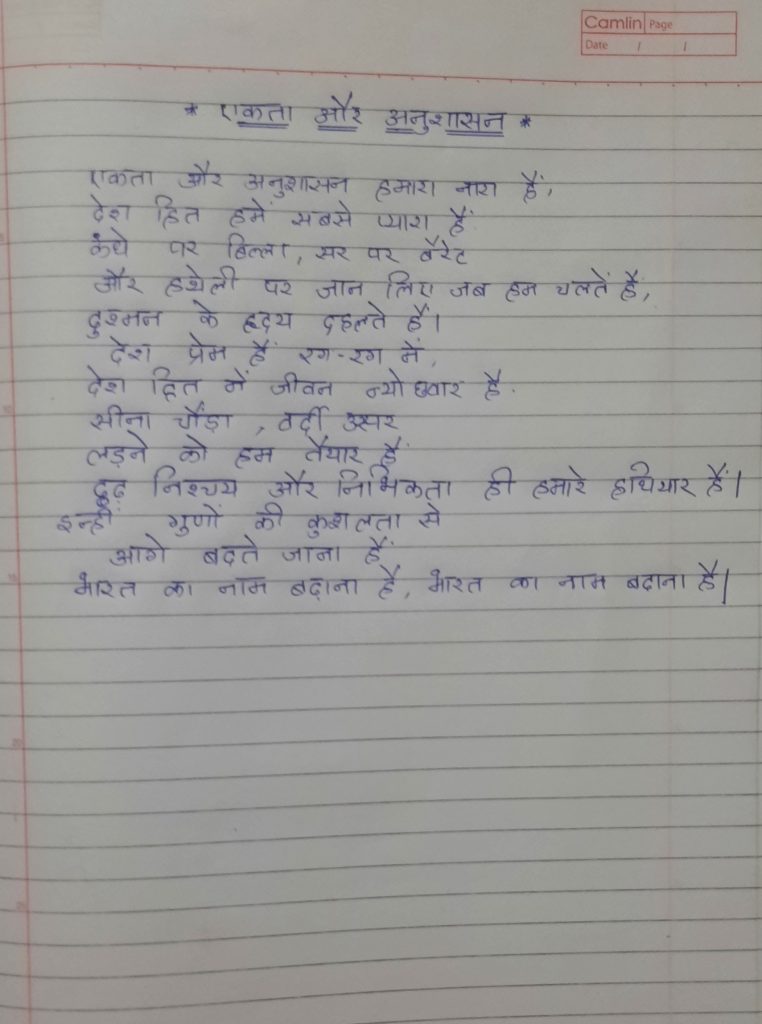 Camlin Page
Date / /
* एकता और अनुशासन *
एकता और अनुशासन हमारा नारा हैं,
देश हित हमें सबसे प्यारा हैं.
कंधे पर बिल्ला, सर पर बैरेट
और हथेली पर जान लिए जब हम चलतें हैं,
दुश्मन के हृदय दहलते हैं।
देश प्रेम हैं रग-रग में,
देश हित में जीवन न्योछवार है.
सीना चौड़ा, वर्दी उसपर
लड़ने को हम तैयार हैं
दृढ़ निश्चय और निर्भिकता ही हमारे हथियार हैं।
इन्हीं गुणों की कुशलता से
आगे बढ़ते जाना हैं.
भारत का नाम बढ़ाना है, भारत का नाम बढ़ाना है।